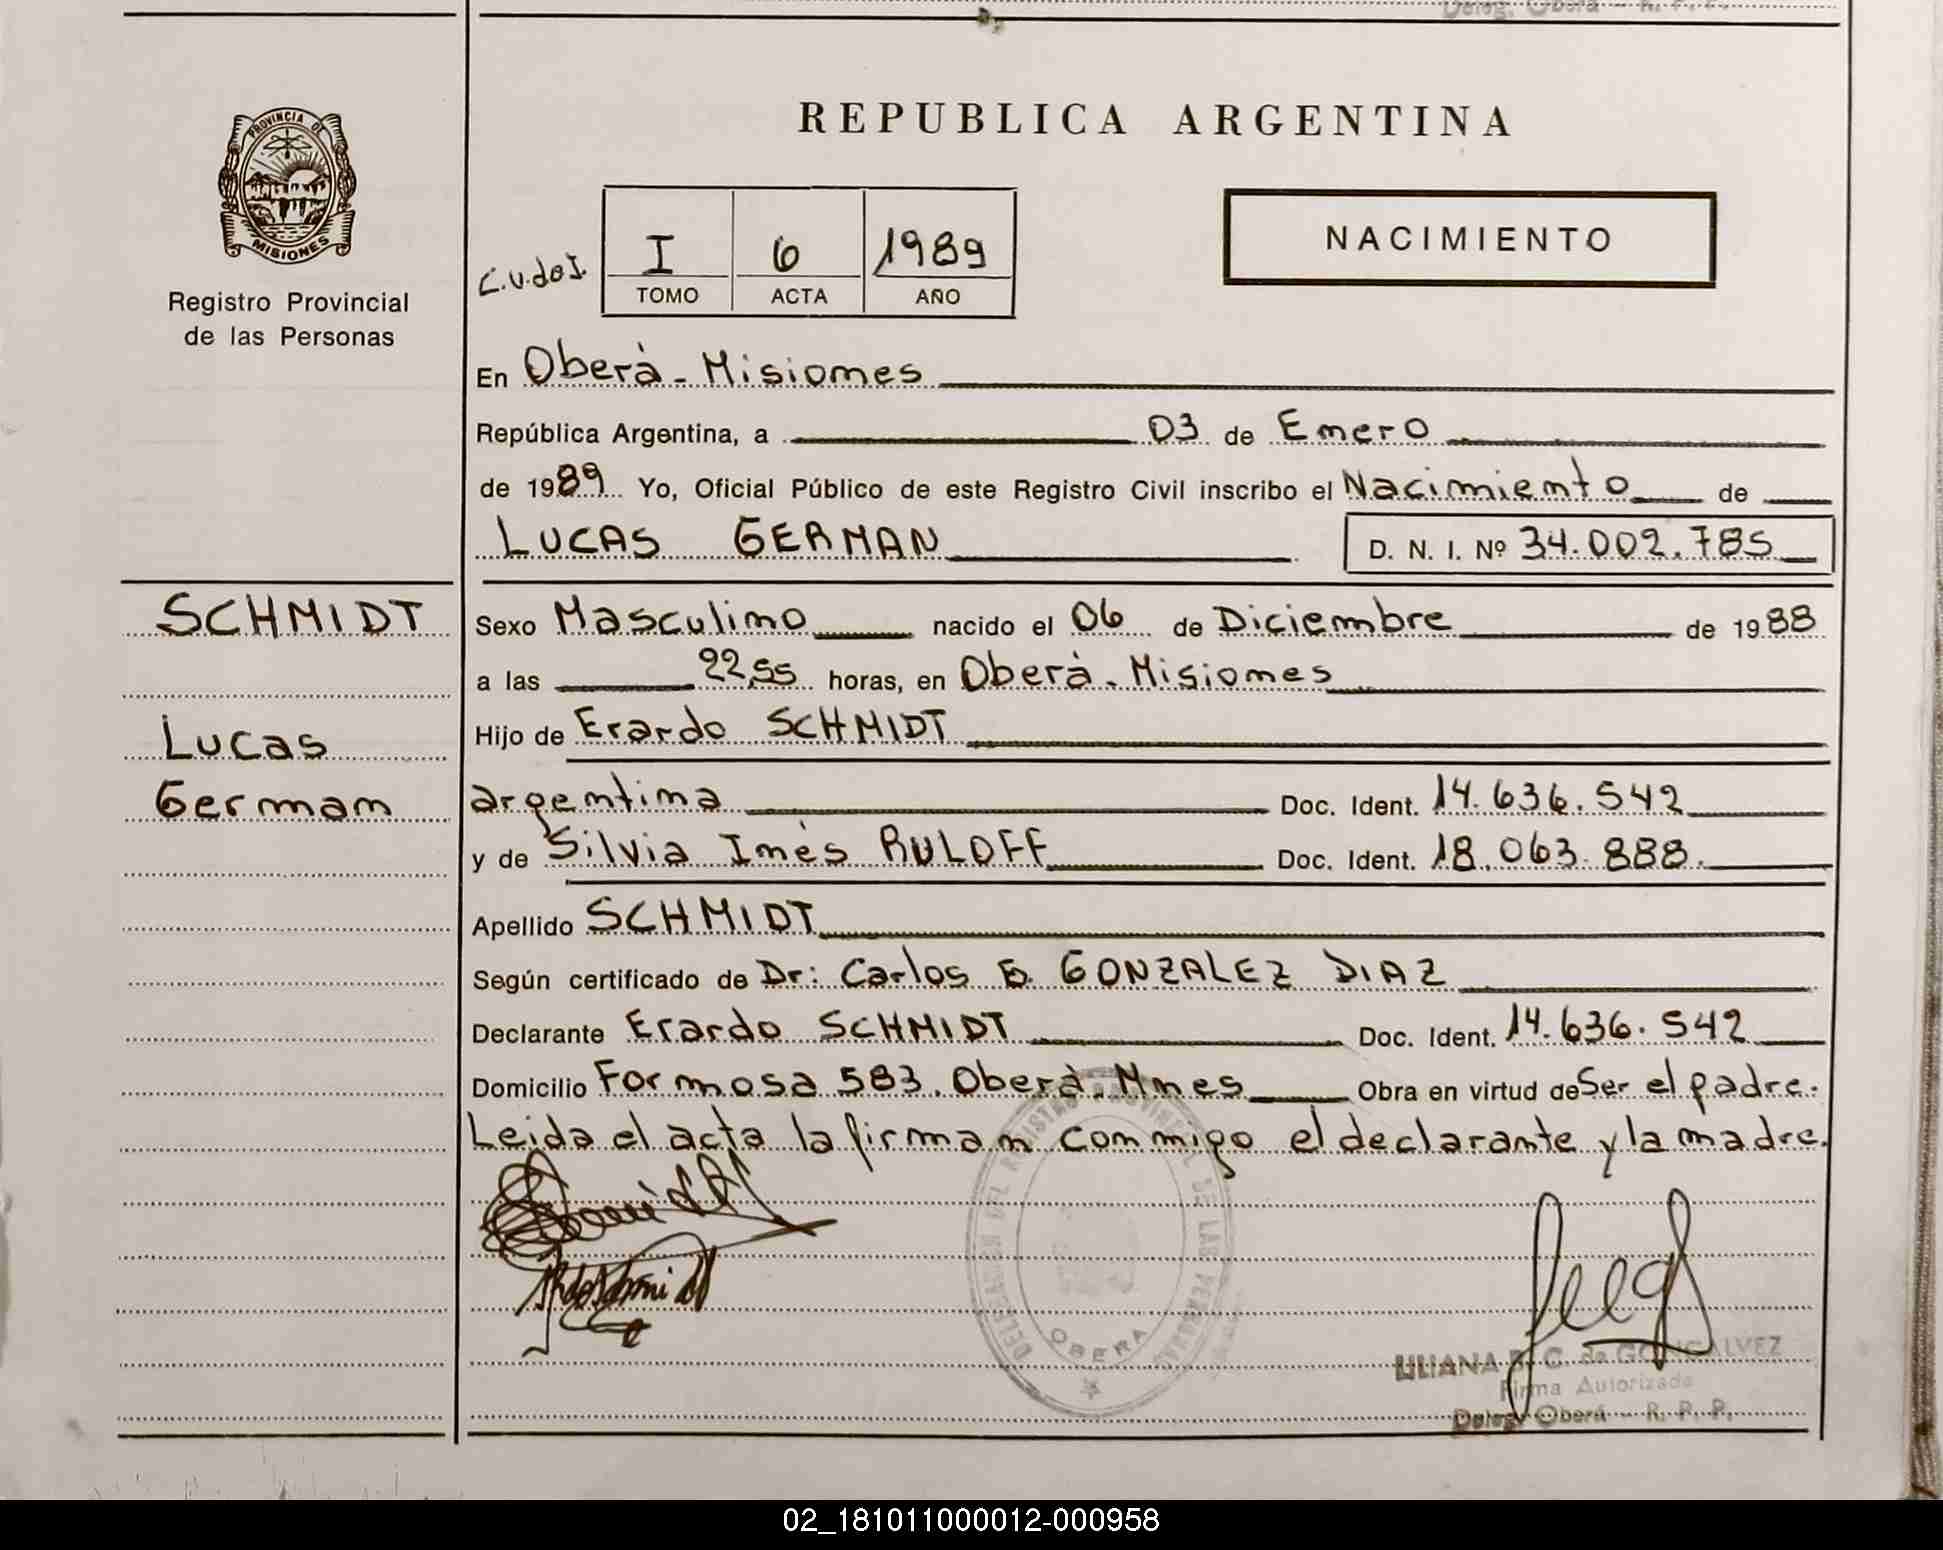 Deleg. Oberá - R. P. P.
PROVINCIA DE
MISIONES
Registro Provincial
de las Personas
REPUBLICA ARGENTINA
C.V. de I.
I 6 1989
TOMO ACTA AÑO
NACIMIENTO
En Oberá - Misiones
República Argentina, a 03 de Enero
de 1989 Yo, Oficial Público de este Registro Civil inscribo el Nacimiento de
LUCAS GERMAN D. N. I. Nº 34.002.785
SCHMIDT
Lucas
German
Sexo Masculino nacido el 06 de Diciembre de 1988
a las 22,55 horas, en Oberá - Misiones
Hijo de Erardo SCHMIDT
argentina Doc. Ident. 14.636.542
y de Silvia Inés RULOFF Doc. Ident. 18.063.888.
Apellido SCHMIDT
Según certificado de Dr: Carlos E. GONZALEZ DIAZ
Declarante Erardo SCHMIDT Doc. Ident. 14.636.542
Domicilio Formosa 583. Oberá - Mnes Obra en virtud de Ser el padre.
Leida el acta la firman conmigo el declarante y la madre.
DELEGACION DEL REGISTRO PROVINCIAL DE LAS PERSONAS
OBERA
LILIANA B. C. de GONCALVEZ
Firma Autorizada
Deleg. Oberá - R. P. P.
02_181011000012-000958